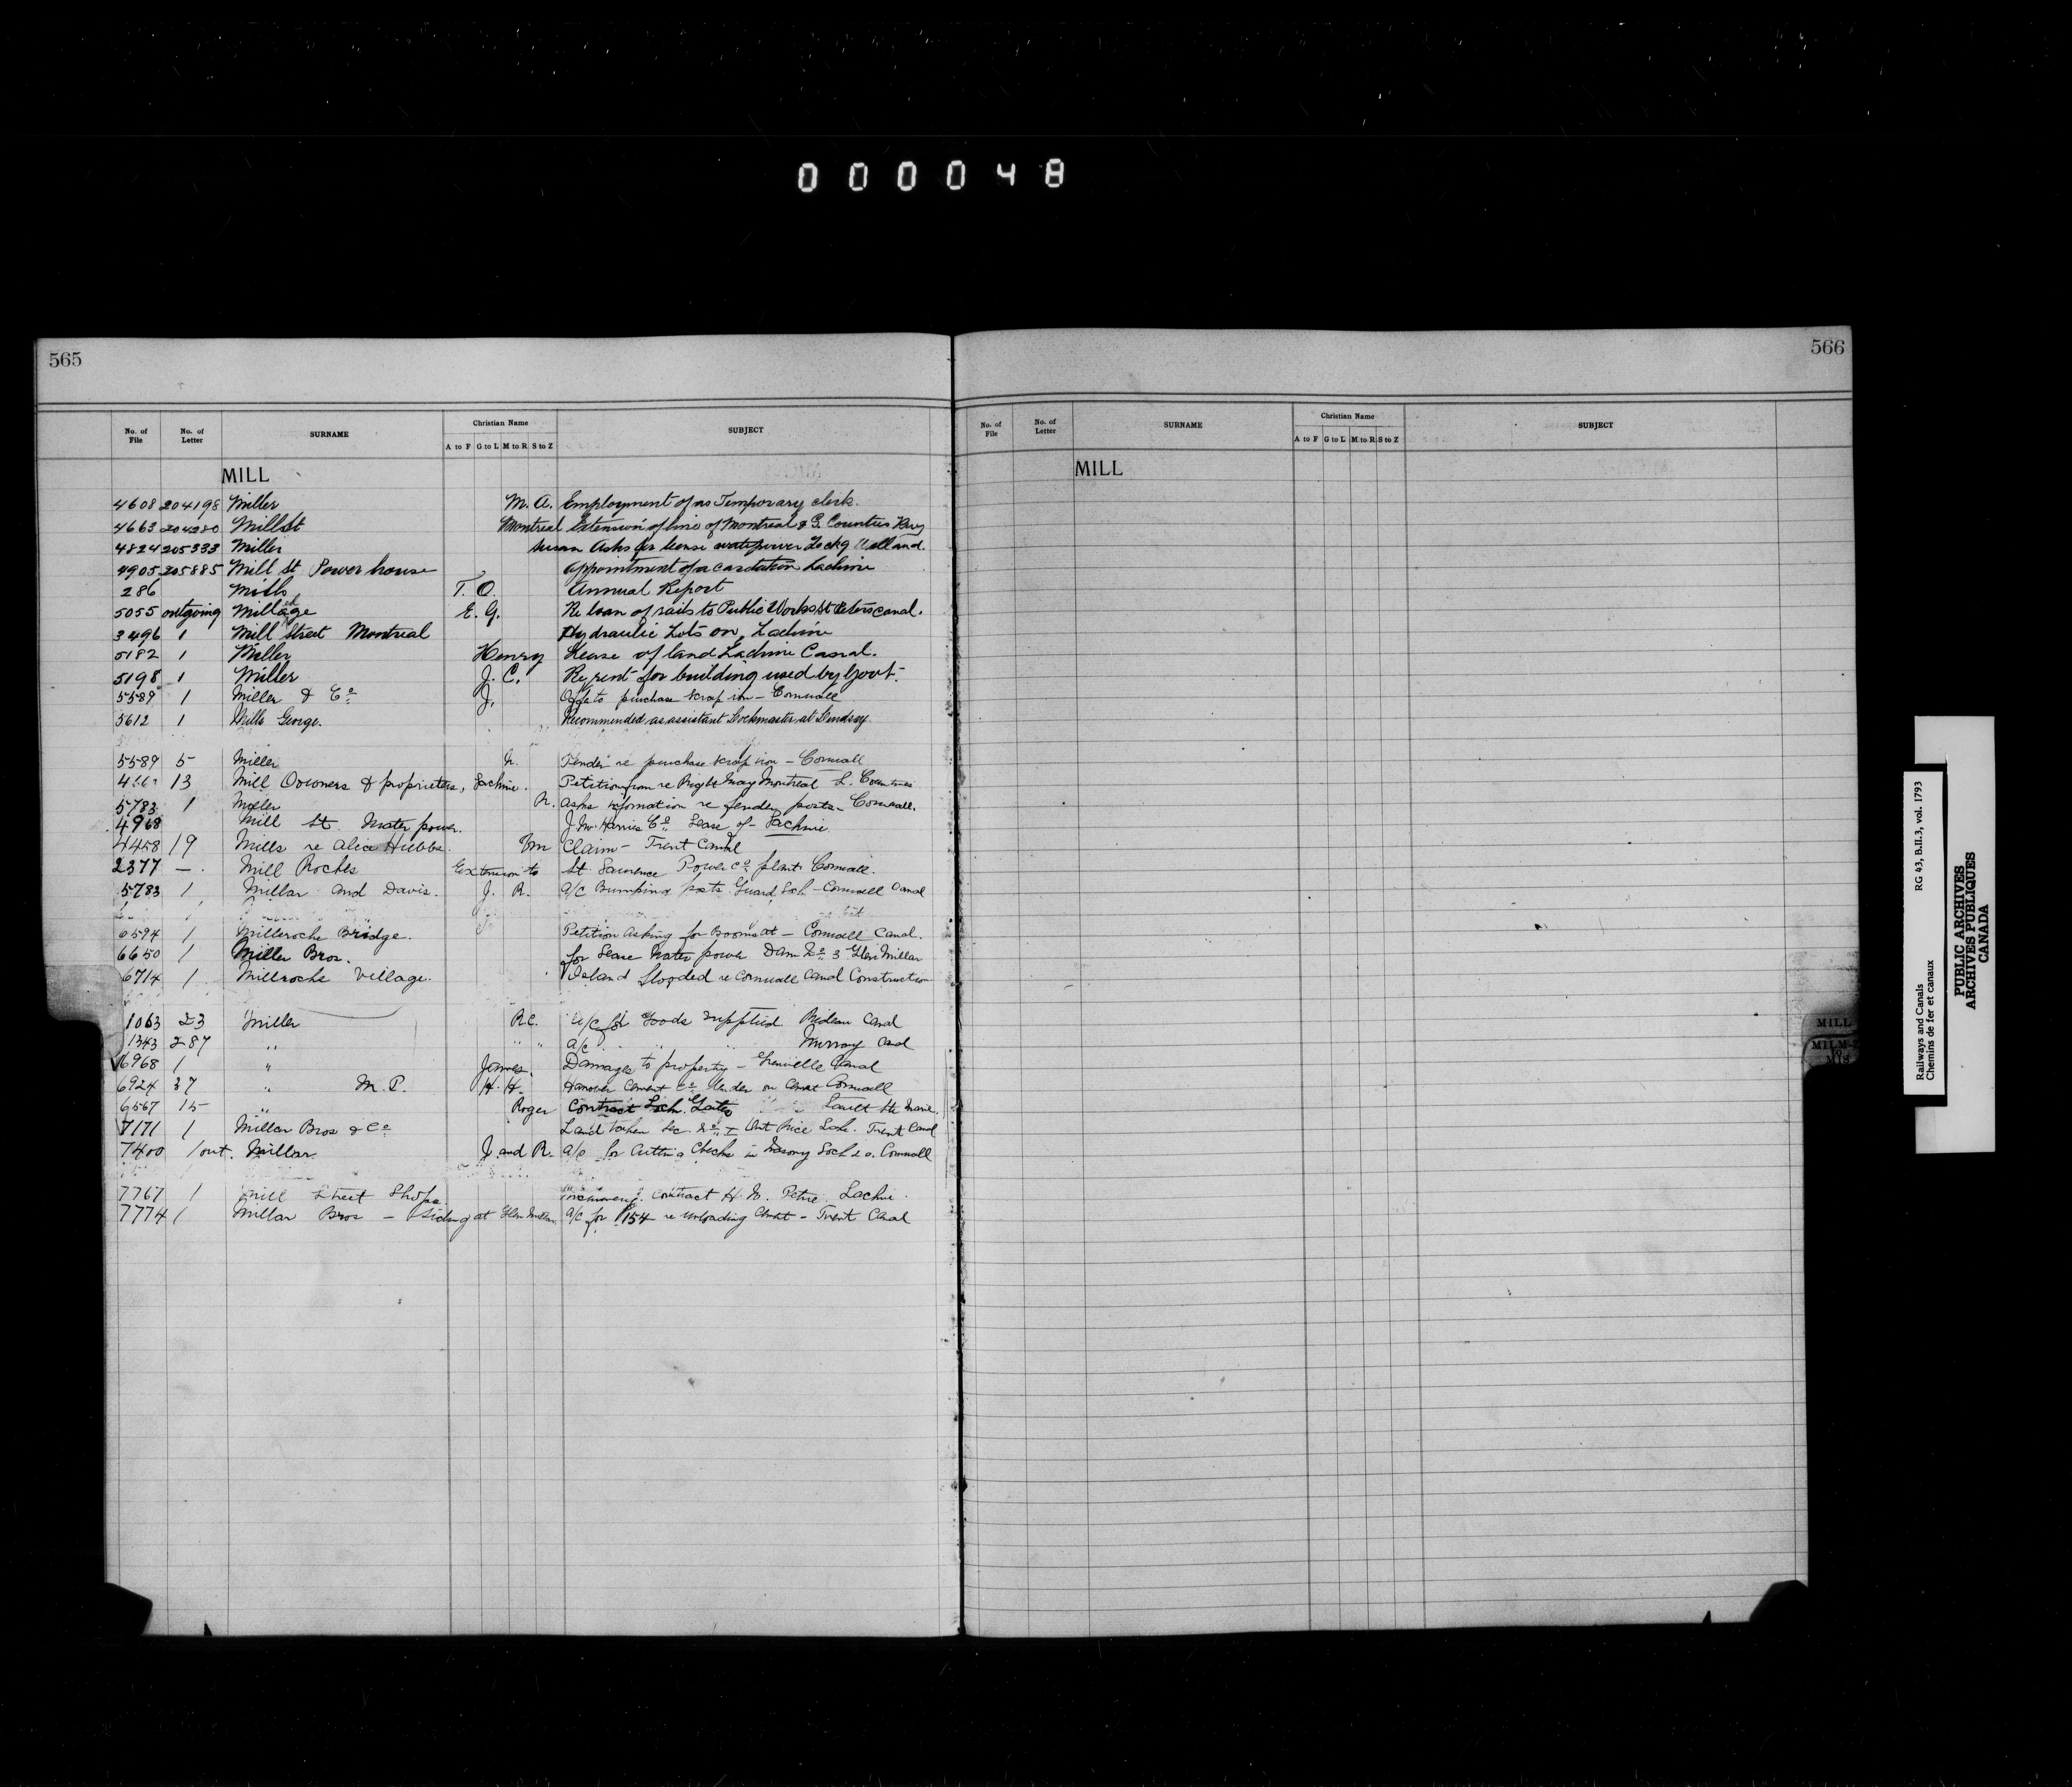 000048
565
No. of File No. of Letter SURNAME Christian Name A to F G to L M to R S to Z SUBJECT
MILL
4608 204198 Miller M. A. Employment of as Temporary clerk.
4663 204280 Mill St Montreal Extension of line of Montreal & S. Counties Rwy
4824 205333 Miller Susan Asks for lease waterpower Lock 9 Welland.
4905 205885 Mill St Power house Appointment of a caretaker Lachine
286 Mills T. O. Annual Report
5055 outgoing Millage E. G. Re loan of rails to Public Works St Peters canal.
3496 1 Mill Street Montreal Hydraulic Lots on, Lachine
5182 1 Miller Henry Lease of land Lachine Canal.
5198 1 Miller J. C. Re, rent for building used by Govt.
5589 1 Miller & Co J. Offer to purchase scrap iron – Cornwall
5612 1 Mills George. Recommended as assistant Lockmaster at Lindsay.
5589 5 Miller Tender re purchase scrap iron – Cornwall
13 Mill Owners & proprietors, Lachine. Petition from re Right way Montreal S. Counties
5783 1 Miller R. Asks information re fender posts – Cornwall.
4968 Mill St. Water power. J. W. Harris Co Lease of – Lachine
4458 19 Mills re Alice Hubbs. Wm Claim – Trent Canal
2377 — Mill Roches Extension to St. Lawrence Power Co plant Cornwall.
5783 1 Millar and Davis. J. R. A/C Bumping posts Guard Lock – Cornwall Canal
6594 1 Milleroche Bridge. Petition Asking for Booms at – Cornwall Canal.
6650 1 Miller Bros. for Lease Water power Dam No 3 Glen Millar
6714 1 Millroche Village. Island flooded re Cornwall Canal Construction
1063 23 Miller R.C. A/C for Goods supplied Rideau Canal
1343 287 " " " A/C " " Murray Canal
6968 1 " James. Damages to property – Grenville Canal
6924 37 " M. P. H. H. Hanover Cement Co Tender on Cement Cornwall
6567 15 " Roger Contract Lock Gates Sault Ste Marie.
7171 1 Millar Bros & Co Land taken Sec. No 1 Ont Rice Lake. Trent Canal
7400 1 out. Millar J. and R. A/C for Cutting Checks in Masonry Lock 20. Cornwall
7767 1 Mill Street Shops contract H. W. Petrie Lachine.
7774 1 Millar Bros – Siding at Glen Millar A/C for $154 re unloading Cement – Trent Canal
566
No. of File No. of Letter SURNAME Christian Name A to F G to L M to R S to Z SUBJECT
MILL
MILL
MILM-Z
TO
MIS
RG 43, B.II.3, vol. 1793
Railways and Canals
Chemins de fer et canaux
PUBLIC ARCHIVES
ARCHIVES PUBLIQUES
CANADA